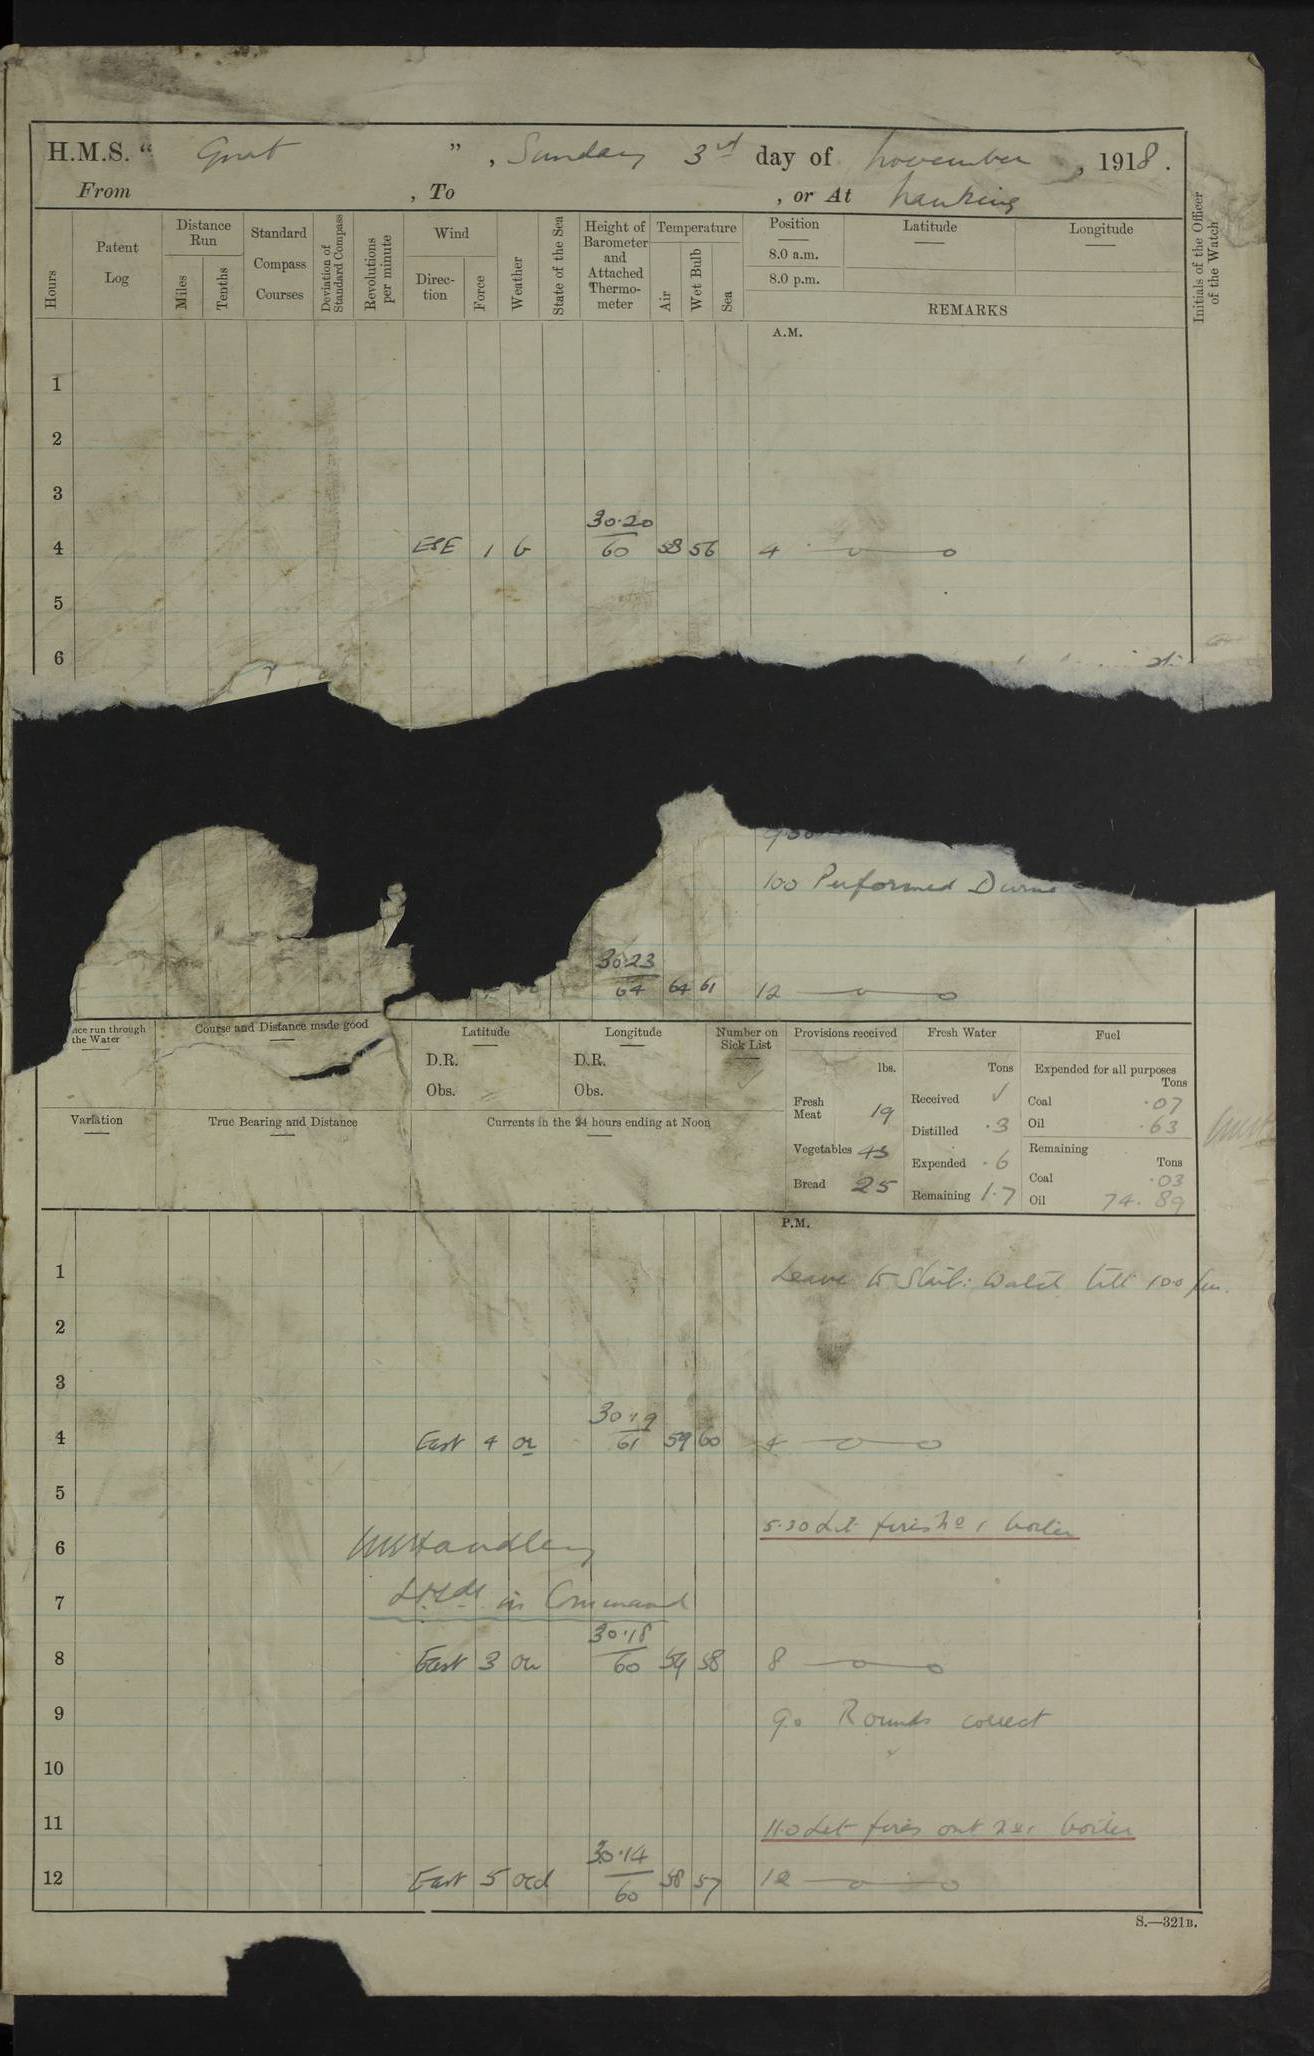 H.M.S. " Gnat ", Sunday 3rd day of November, 1918.
From , To , or At Nanking
Hours
Patent Log
Distance Run
Miles
Tenths
Standard Compass Courses
Deviation of Standard Compass
Revolutions per minute
Wind
Direction
Force
Weather
State of the Sea
Height of Barometer and Attached Thermometer
Temperature
Air
Wet Bulb
Sea
Position
8.0 a.m.
8.0 p.m.
Latitude
Longitude
REMARKS
Initials of the Officer of the Watch
A.M.
1
2
3
30.20
4 ESE 1 b 60 58 56 4
5
6
9.30
10.0 Performed
30.23
64 64 61 12
nce run through the Water
Course and Distance made good
Latitude
D.R.
Obs.
Longitude
D.R.
Obs.
Number on Sick List
Variation
True Bearing and Distance
Currents in the 24 hours ending at Noon
Provisions received
lbs.
Fresh Meat 19
Vegetables 43
Bread 25
Fresh Water
Tons
Received ✓
Distilled .3
Expended .6
Remaining 1.7
Fuel
Expended for all purposes
Tons
Coal .07
Oil .63
Remaining
Tons
Coal .03
Oil 74.89
P.M.
1 Leave to Starb: Watch till
2
3
30.19
4 East 4 or 61 59 60 4
5
5.30 Lit fires No 1 boiler
6
7 in Command
30.18
8 East 3 ou 60 59 58 8
9 9.0 Rounds correct
10
11 11.0 Let fires out No 1 boiler
30.14
12 East 5 ocd 60 58 57 12
S.—321B.